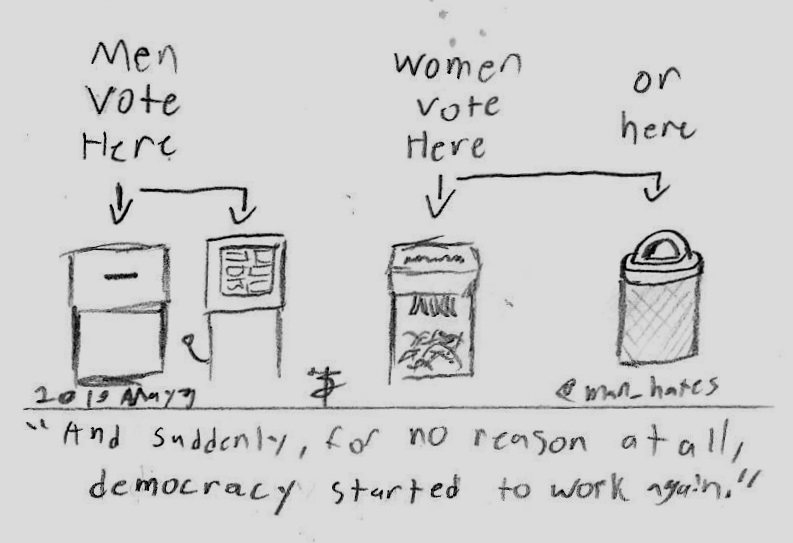 Men
Vote
Here
Women
Vote
Here
or
here
2019 May 7
@man_hates
"And suddenly, for no reason at all,
democracy started to work again."